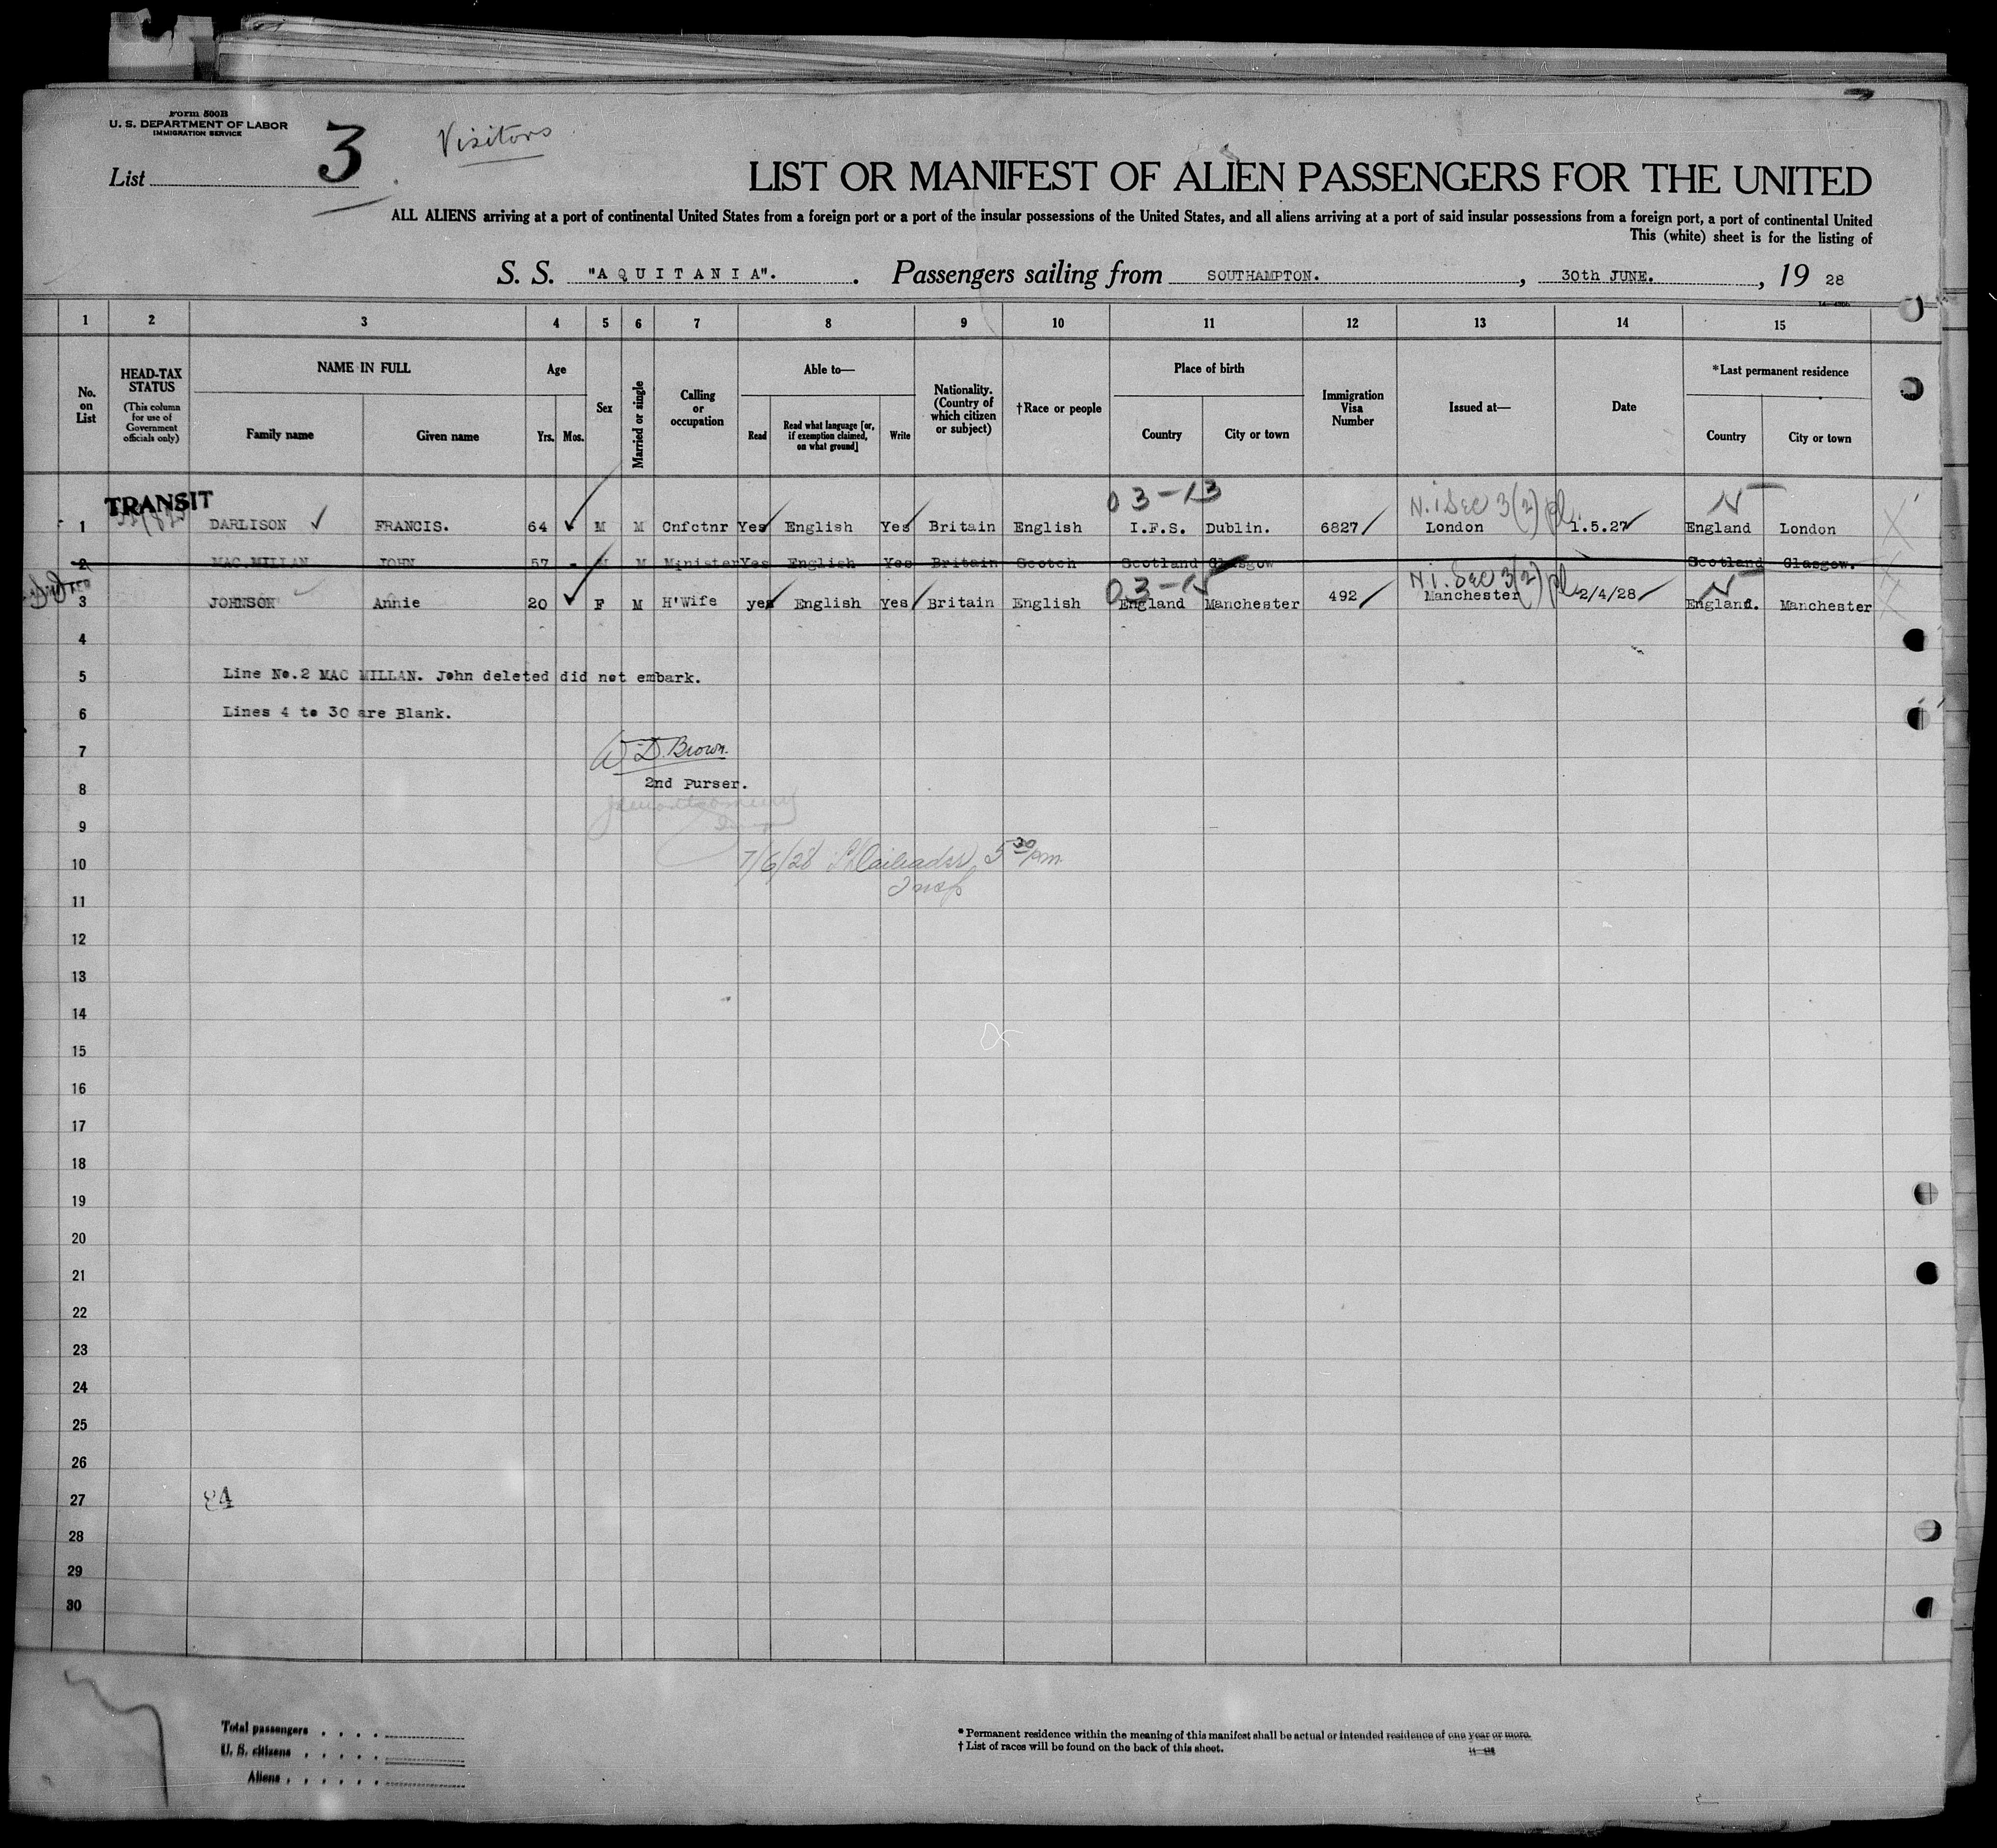 Form 500B
U. S. DEPARTMENT OF LABOR
IMMIGRATION SERVICE
List 3
Visitors
LIST OR MANIFEST OF ALIEN PASSENGERS FOR THE UNITED
ALL ALIENS arriving at a port of continental United States from a foreign port or a port of the insular possessions of the United States, and all aliens arriving at a port of said insular possessions from a foreign port, a port of continental United
This (white) sheet is for the listing of
S. S. "AQUITANIA". Passengers sailing from SOUTHAMPTON. , 30th JUNE. , 19 28
1 2 3 4 5 6 7 8 9 10 11 12 13 14 15
No. on List
HEAD-TAX STATUS (This column for use of Government officials only)
NAME IN FULL Family name Given name
Age Yrs. Mos.
Sex
Married or single
Calling or occupation
Able to— Read Read what language [or, if exemption claimed, on what ground] Write
Nationality. (Country of which citizen or subject)
†Race or people
Place of birth Country City or town
Immigration Visa Number
Issued at—
Date
*Last permanent residence Country City or town
TRANSIT 03-13 N.I Sec 3(2) pl. N
1 DARLISON FRANCIS. 64 M M Cnfctnr Yes English Yes Britain English I.F.S. Dublin. 6827 London 1.5.27 England London
2 MAC.MILLAN JOHN 57 - M M Minister Yes English Yes Britain Scotch Scotland Glasgow Scotland Glasgow.
03-15 N.I. Sec 3(2) pl N
3 JOHNSON Annie 20 F M H'Wife yes English Yes Britain English England Manchester 492 Manchester 2/4/28 England. Manchester
4
5 Line No.2 MAC MILLAN. John deleted did not embark.
6 Lines 4 to 30 are Blank.
7 W D. Brown.
8 2nd Purser.
9
10 7/6/28 5 30 pm
Insp
11
12
13
14
15
16
17
18
19
20
21
22
23
24
25
26
27 84
28
29
30
Total passengers . . . .
U. S. citizens . . . . .
Aliens . . . . . .
* Permanent residence within the meaning of this manifest shall be actual or intended residence of one year or more.
† List of races will be found on the back of this sheet.